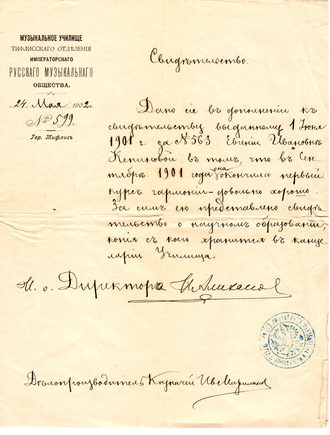 МУЗЫКАЛЬНОЕ УЧИЛИЩЕ
ТИФЛИССКАГО ОТДѢЛЕНІЯ
ИМПЕРАТОРСКАГО
РУССКАГО МУЗЫКАЛЬНАГО
ОБЩЕСТВА.
24 Мая 1902 г.
№ 599.
Гор. Тифлисъ
Свидѣтельство.
Дано сіе въ дополненіи къ
свидѣтельству выданному 1 Іюня
1901 г. за № 563 Евгеніи Ивановнѣ
въ томъ, что въ Сен-
тябрѣ 1901 года она окончила первый
курсъ гармоніи довольно хорошо.
За симъ ею представлено свидѣ-
тельство о научномъ образованіи,
копія съ коего хранится въ канце-
ляріи Училища.
И. о. Директора
Дѣлопроизводитель Казначей